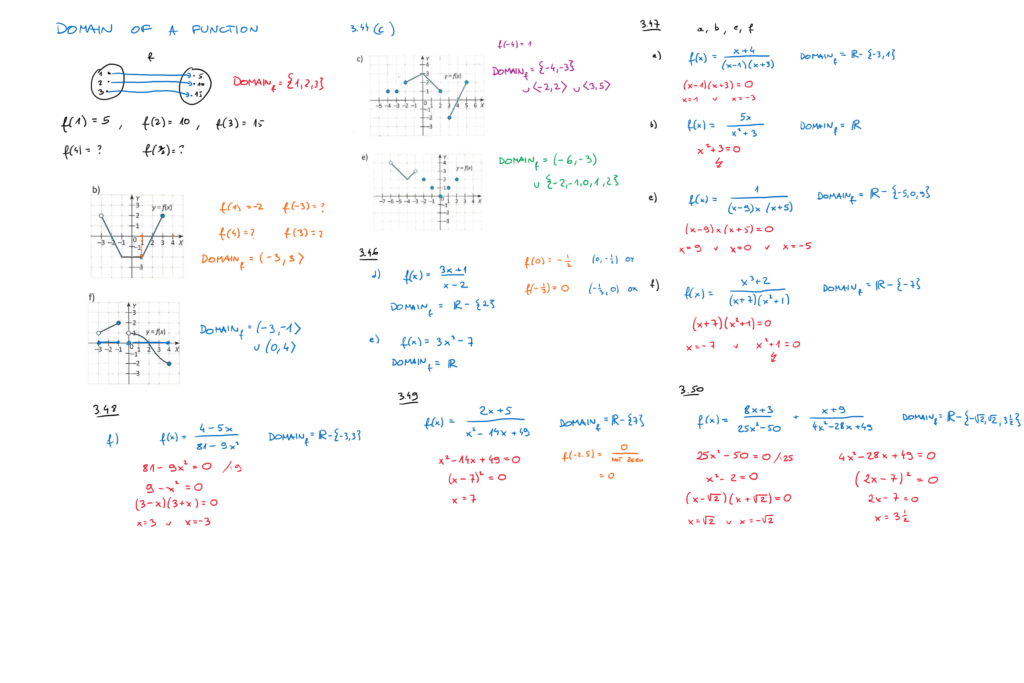 DOMAIN OF A FUNCTION
f
1 → 5
2 → 10
3 → 15
DOMAIN_f = {1,2,3}
f(1) = 5 , f(2) = 10 , f(3) = 15
f(4) = ? f(½) = ?
b)
y=f(x)
f(1) = -2 f(-3) = ?
f(4) = ? f(3) = ?
DOMAIN_f = (-3, 3)
f)
y=f(x)
DOMAIN_f = (-3,-1⟩
∪ (0,4⟩
3.41 (c)
c)
y=f(x)
f(-4) = 1
DOMAIN_f = {-4,-3}
∪ ⟨-2,2⟩ ∪ ⟨3,5⟩
e)
y=f(x)
DOMAIN_f = (-6,-3)
∪ {-2,-1,0,1,2}
3.46
d) f(x) = (3x+1)/(x-2)
f(0) = -1/2 (0,-½) OY
f(-⅓) = 0 (-⅓,0) OX
DOMAIN_f = ℝ - {2}
e) f(x) = 3x² - 7
DOMAIN_f = ℝ
3.47 a, b, e, f
a) f(x) = (x+4)/((x-1)(x+3)) DOMAIN_f = ℝ - {-3,1}
(x-1)(x+3) = 0
x=1 ∨ x=-3
b) f(x) = 5x/(x²+3) DOMAIN_f = ℝ
x²+3=0
e) f(x) = 1/((x-9)x(x+5)) DOMAIN_f = ℝ - {-5,0,9}
(x-9)x(x+5) = 0
x=9 ∨ x=0 ∨ x=-5
f) f(x) = (x³+2)/((x+7)(x²+1)) DOMAIN_f = ℝ - {-7}
(x+7)(x²+1) = 0
x=-7 ∨ x²+1=0
3.48
f) f(x) = (4-5x)/(81-9x²) DOMAIN_f = ℝ - {-3,3}
81 - 9x² = 0 /:9
9 - x² = 0
(3-x)(3+x) = 0
x=3 ∨ x=-3
3.49
f(x) = (2x+5)/(x²-14x+49) DOMAIN_f = ℝ - {7}
x²-14x+49 = 0
(x-7)² = 0
x = 7
f(-2.5) = 0/NOT ZERO
= 0
3.50
f(x) = (8x+3)/(25x²-50) + (x+9)/(4x²-28x+49) DOMAIN_f = ℝ - {-√2,√2,3½}
25x² - 50 = 0 /:25
x² - 2 = 0
(x-√2)(x+√2) = 0
x=√2 ∨ x=-√2
4x²-28x+49 = 0
(2x-7)² = 0
2x-7=0
x = 3½